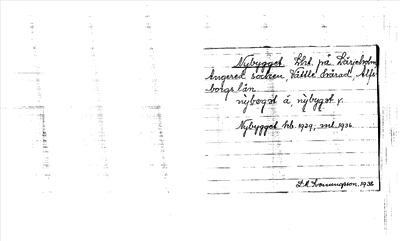 Nybygget Lht. på Lärjeholm
Angered socken, Vättle härad, Älfs-
borgs län
nỳbogst á, nỳbygst y.
Nybygget hb. 1929, ml. 1936
1936